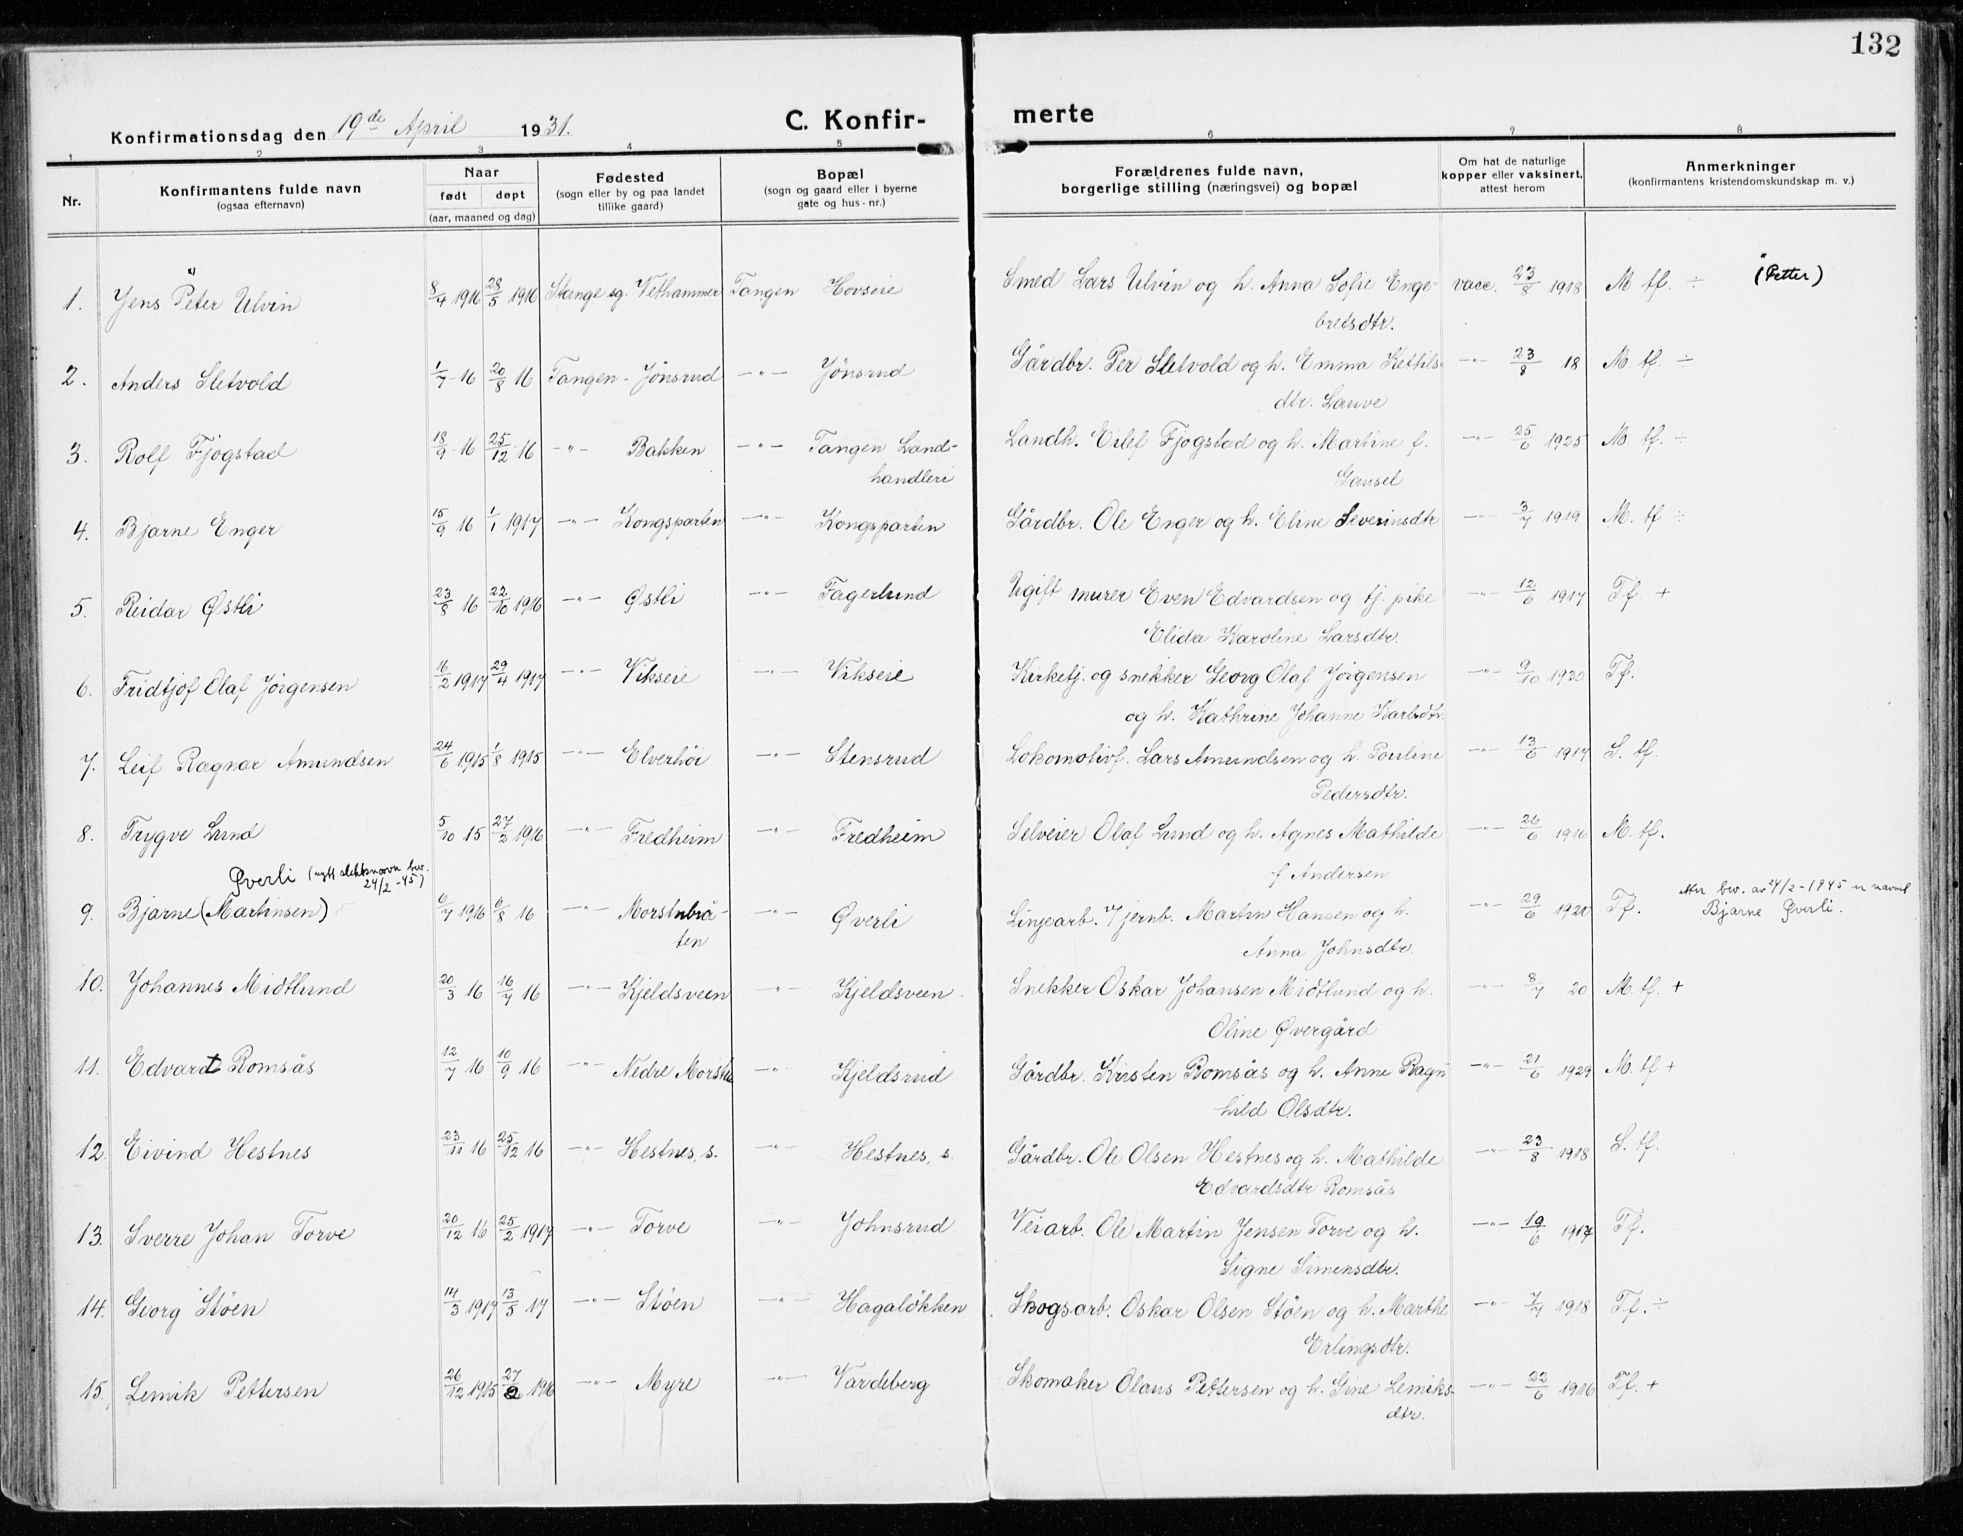 132
Konfirmationsdag den 19de April 1931.
C. Konfir-merte
1 2 3 4 5 6 7 8
Nr. | Konfirmantens fulde navn (ogsaa efternavn) | Naar født døpt (aar, maaned og dag) | Fødested (sogn eller by og paa landet tillike gaard) | Bopæl (sogn og gaard eller i byerne gate og hus-nr.) | Forældrenes fulde navn, borgerlige stilling (næringsvei) og bopæl | Om hat de naturlige kopper eller vaksinert, attest herom | Anmerkninger (konfirmantens kristendomskundskap m. v.)
1. Jens Peter Ulvin | 8/4 1916 | 28/5 1916 | Stange sg. Vethammer | Tangen Hovseie | Smed Lars Ulvin og h. Anna Sofie Enge-
bretsdtr. | vacc. 23/8 1918 | M tf. ÷ " (Petter)
2. Anders Sletvold | 1/7 16 | 20/8 16 | Tangen - Jönsrud | -"- Jönsrud | Gårdbr. Per Sletvold og h. Emma Kettils-
dtr. Lauve | -"- 23/8 18 | M tf. ÷
3. Rolf Fjogstad | 18/9 16 | 25/12 16 | -"- Bakken | -"- Tangen Land-
handleri | Landh. Eilef Fjogstad og h. Martine f.
Gausel | -"- 25/6 1925 | M tf. ÷
4. Bjarne Enger | 15/9 16 | 1/1 1917 | -"- Kongsparten | -"- Kongsparten | Gårdbr. Ole Enger og h. Eline Severinsdtr | -"- 3/7 1919 | M. tf ÷
5. Reidar Østli | 23/8 16 | 22/10 1916 | -"- Østli | -"- Fagerlund | Ugift murer Even Edvardsen og tj. pike
Elida Karoline Larsdtr. | -"- 12/6 1917 | Tf. +
6. Fridtjof Olaf Jörgensen | 16/2 1917 | 29/4 1917 | -"- Vikseie | -"- Vikseie | Kirketj. og snekker Georg Olaf Jörgensen
og h. Kathrine Johanne Karlsdtr. | -"- 9/10 1930 | Tf.
7. Leif Ragnar Amundsen | 24/6 1915 | 1/8 1915 | -"- Elverhöi | -"- Stensrud | Lokomotivf. Lars Amundsen og h. Pouline
Pedersdtr. | -"- 13/6 1917 | S. tf.
8. Trygve Lund | 5/10 15 | 27/2 1916 | -"- Fredheim | -"- Fredheim | Selveier Olaf Lund og h. Agnes Mathilde
f Andersen | -"- 26/6 1916 | M. tf.
Øverli (nytt slektsnavn bev. 24/2-45)
9. Bjarne (Martinsen) | 6/7 1916 | 6/8 16 | -"- Morstubrå-
ten | -"- Øverli | Linjearb. v/jernb. Martin Hansen og h.
Anna Johnsdtr. | -"- 29/6 1920 | Tf. Iflr. bev. av 24/2-1945 er navnet
Bjarne Øverli.
10. Johannes Midtlund | 20/3 16 | 16/7 16 | -"- Kjeldsveen | -"- Kjeldsveen | Snekker Oskar Johansen Midtlund og h.
Oline Øvergård | -"- 8/7 20 | M. tf. +
11. Edvart Romsås | 12/7 16 | 10/9 16 | -"- Nedre Morstu | -"- Kjeldsrud | Gårdbr. Kristen Romsås og h. Anne Ragn-
hild Olsdtr. | -"- 21/6 1929 | M. tf +
12. Eivind Hestnes | 23/11 16 | 25/12 16 | -"- Hestnes, s. | -"- Hestnes, s. | Gårdbr. Ole Olsen Hestnes og h. Mathilde
Edvardsdtr Romsås | -"- 23/8 1918 | S. tf.
13. Sverre Johan Torve | 20/12 16 | 25/2 1917 | -"- Torve | -"- Johnsrud | Veiarb. Ole Martin Jensen Torve og h.
Signe Simensdtr. | -"- 19/6 1917 | Tf.
14. Georg Stöen | 14/3 1917 | 13/5 17 | -"- Stöen | -"- Hagalökken | Skogsarb. Oskar Olsen Stöen og h. Marthe
Erlingsdtr. | -"- 7/7 1918 | Tf. ÷
15. Lemik Pettersen | 26/12 1915 | 27/2 1916 | -"- Myre | -"- Vardeberg | Skomaker Olaus Pettersen og h. Gine Lemiks-
dtr. | -"- 22/6 1916 | Tf. +